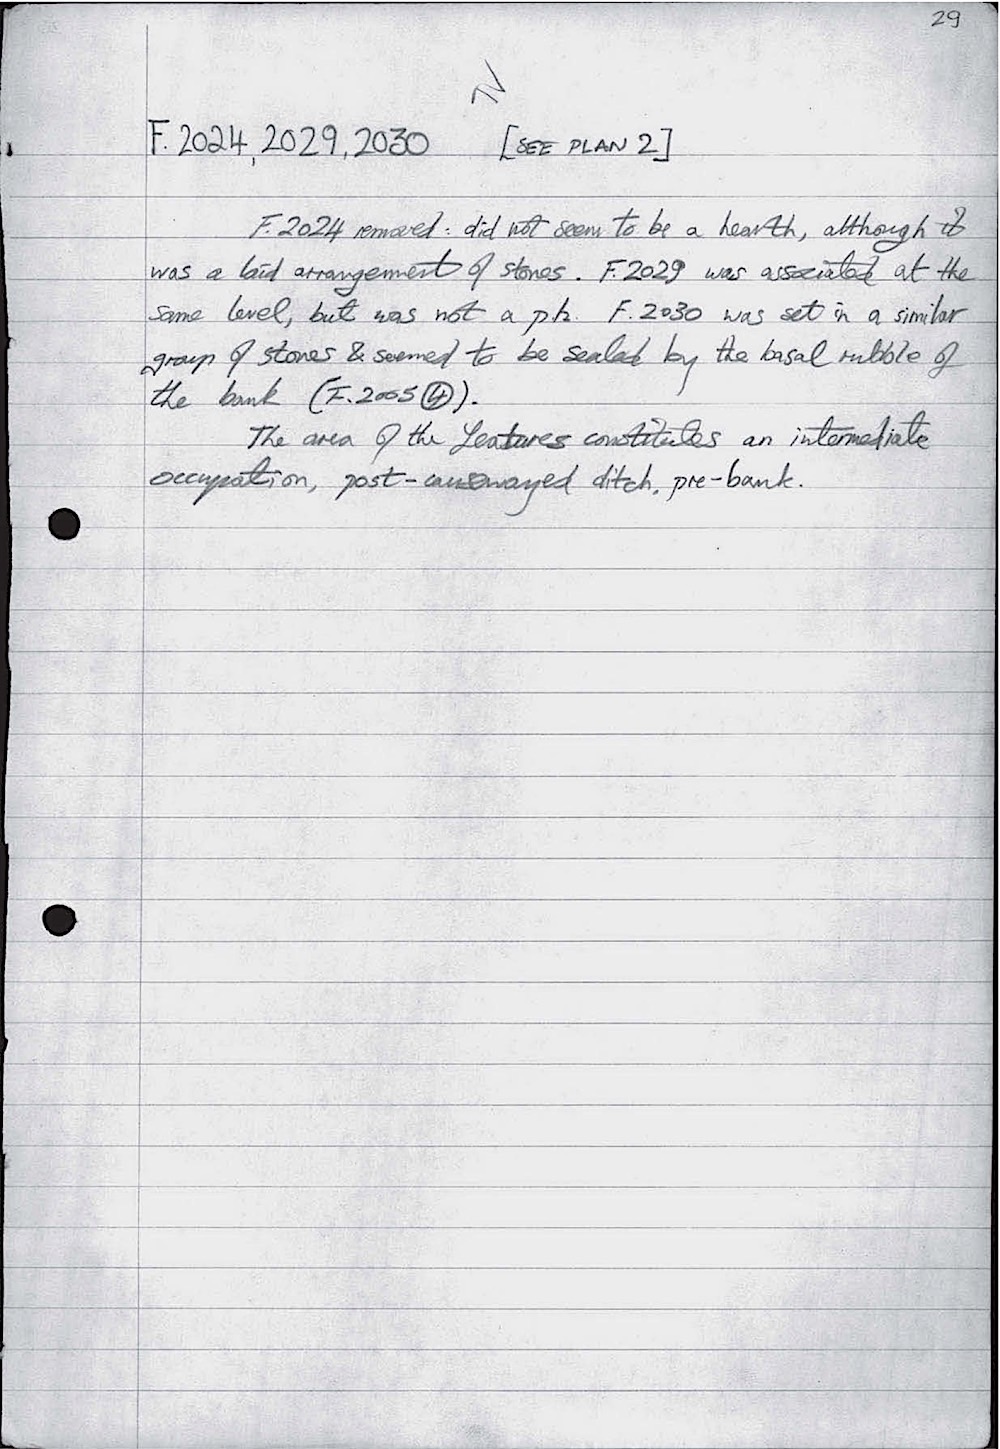 29
F. 2024, 2029, 2030 [SEE PLAN 2]
F. 2024 removed: did not seem to be a hearth, although it
was a laid arrangement of stones. F. 2029 was associated at the
same level, but was not a ph. F. 2030 was set in a similar
group of stones & seemed to be sealed by the basal rubble of
the bank (F. 2005 ④).
The area of the features constitutes an intermediate
occupation, post-causewayed ditch, pre-bank.